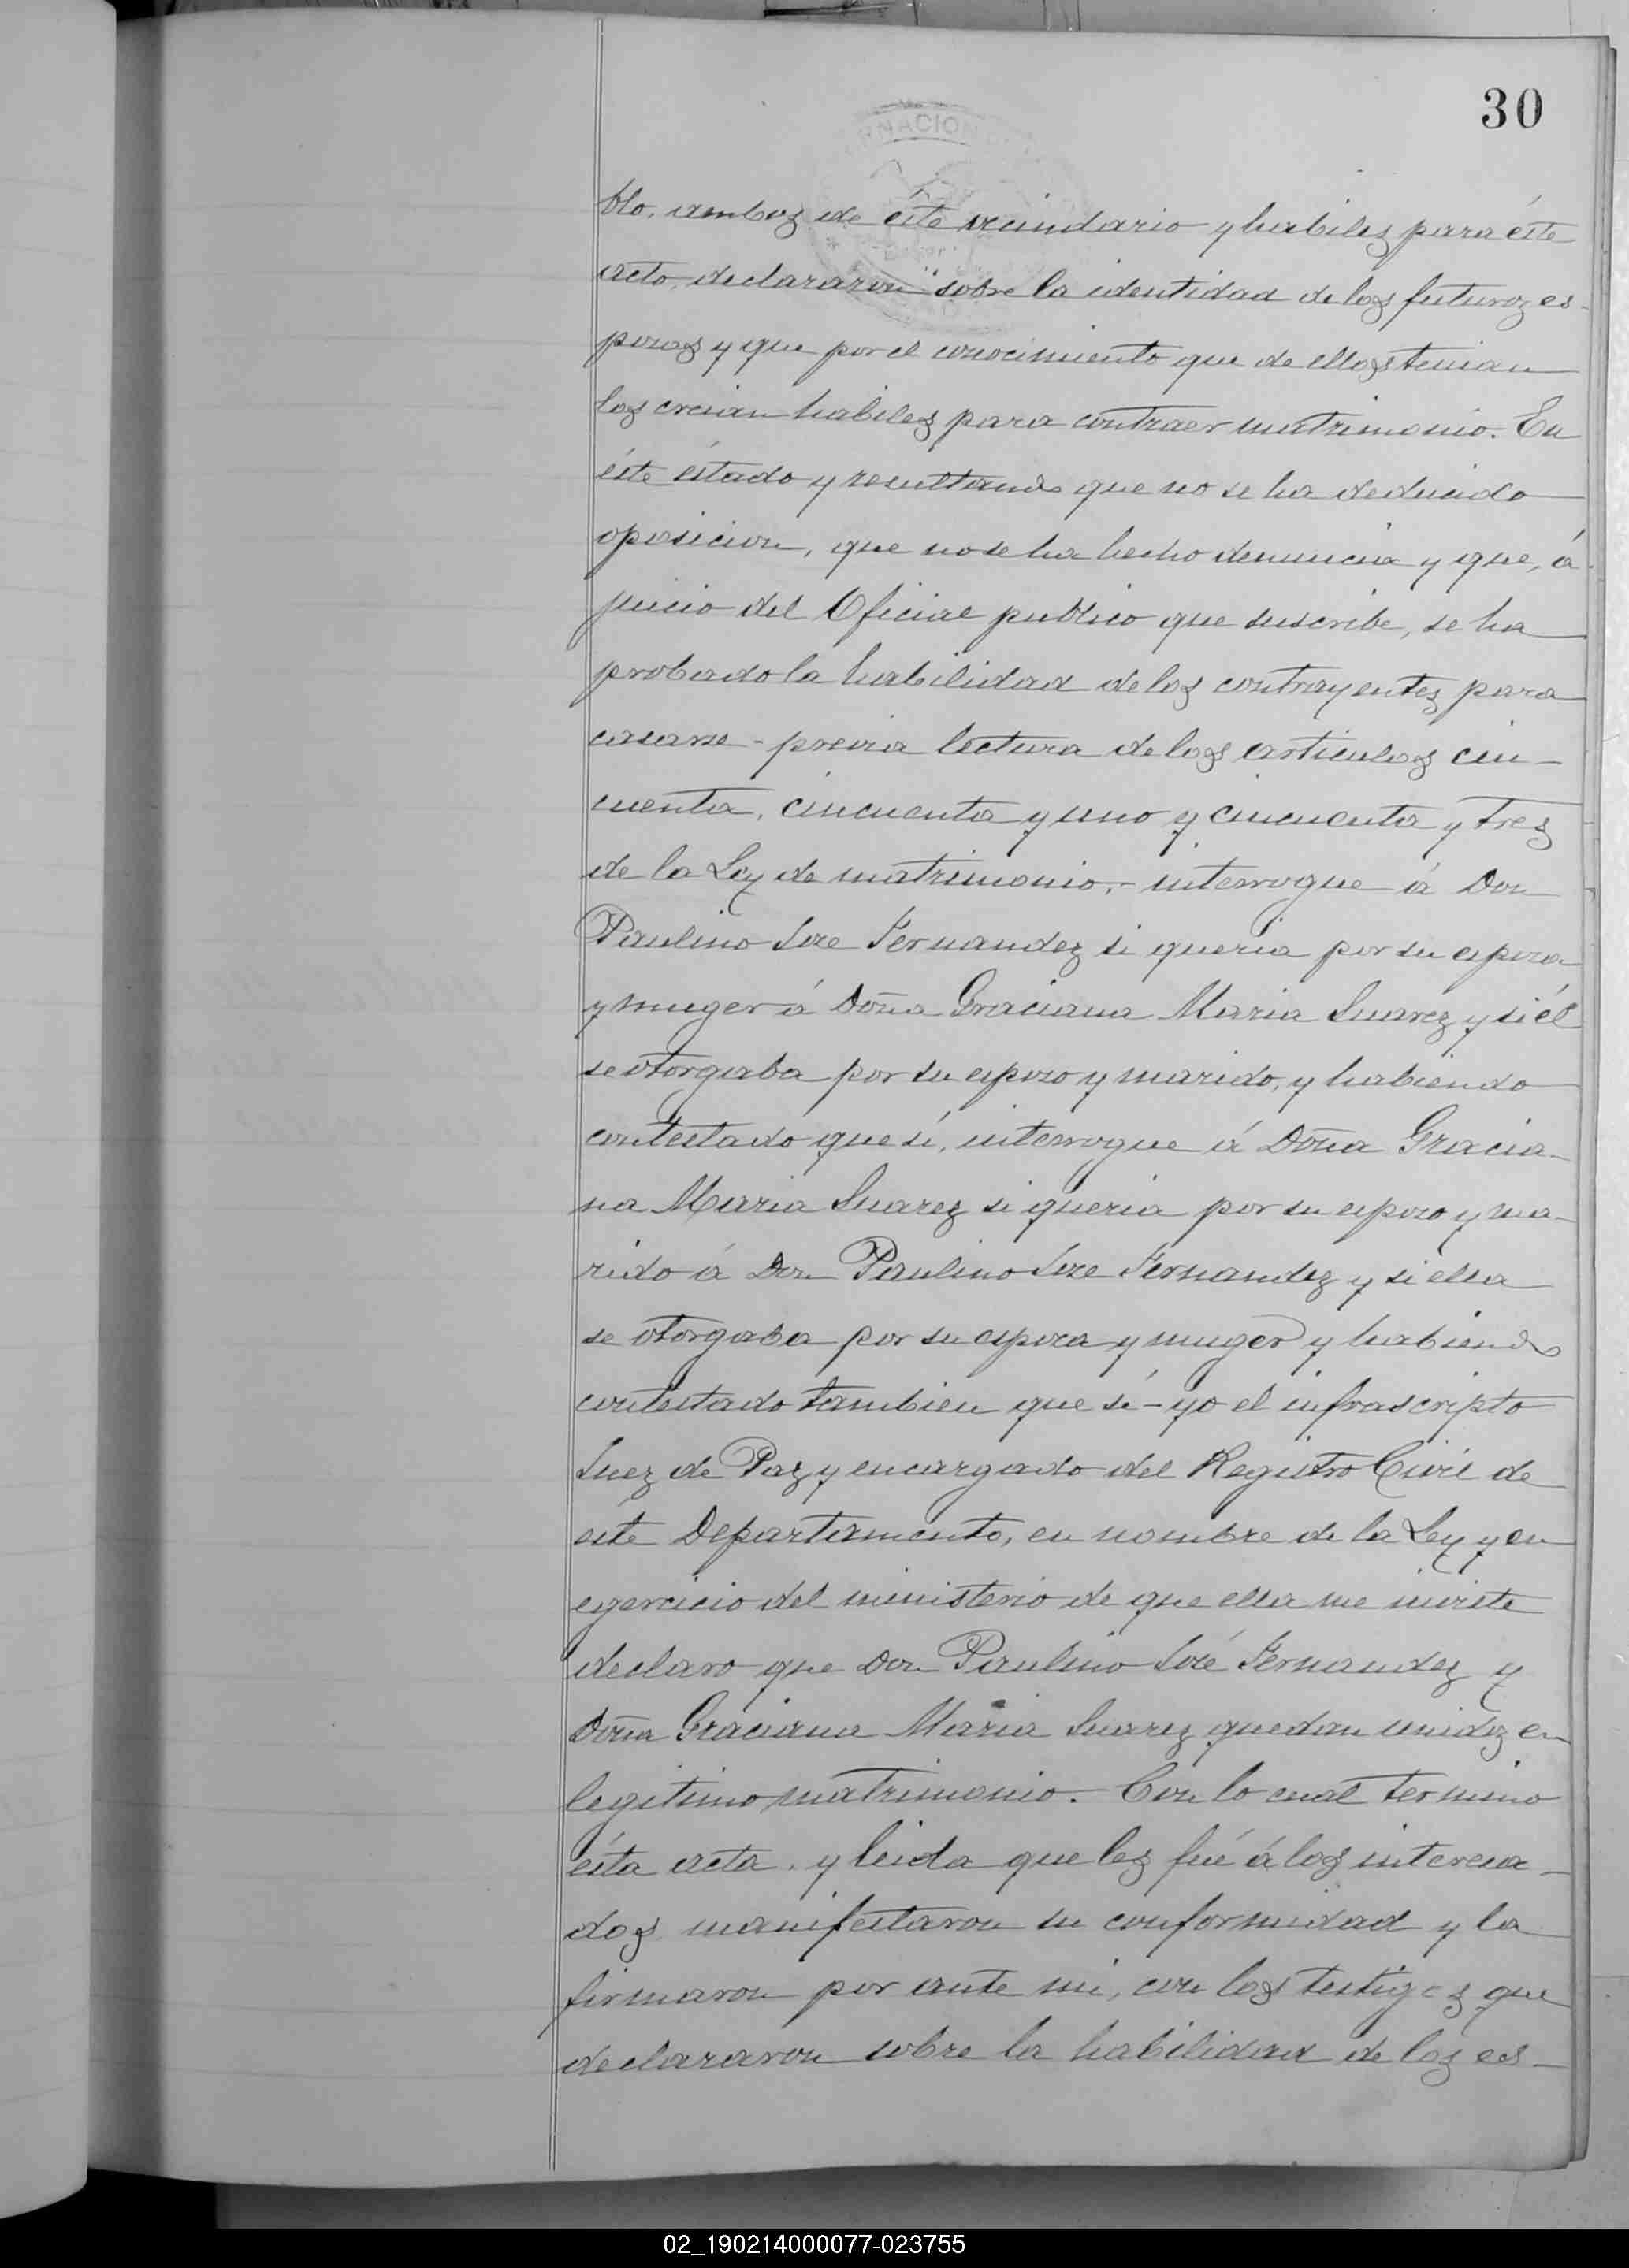 30
blo, ambos de éste vecindario y habiles para éste
acto, declararon sobre la identidad de los futuros es-
posos y que por el conocimiento que de ellos tenian
los creian habiles para contraer matrimonio. En
éste éstado y resultando que no se ha deducido
oposicion, que no se ha hecho denuncia y que, á
juicio del Oficial publico que suscribe, se ha
probado la habilidad de los contrayentes para
casarse - previa lectura de los articulos cin-
cuenta, cincuenta y uno y cincuenta y tres
de la Ley de matrimonio, - interrogue á Don
Paulino Jose Fernandez si queria por su esposa
y muger á Doña Graciana Maria Suarez y si él
se otorgaba por su esposo y marido, y habiendo
contestado que sí, interrogue á Doña Gracia-
na Maria Suarez si queria por su esposo y ma-
rido á Don Paulino Jose Fernandez y si ella
se otorgaba por su esposa y muger y habiendo
contestado tambien que sí - yo el infrascripto
Juez de Paz y encargado del Registro Civil de
éste Departamento, en nombre de la Ley y en
egercicio del ministerio de que ella me inviste
declaro que Don Paulino José Fernandez y
Doña Graciana Maria Suarez quedan unidos en
legitimo matrimonio. Con lo cual termino
ésta acta. y leida que les fué á los interesa-
dos manifestaron su conformidad y la
firmaron por ante mi, con los testigos que
declararon sobre la habilidad de los es-
02_190214000077-023755